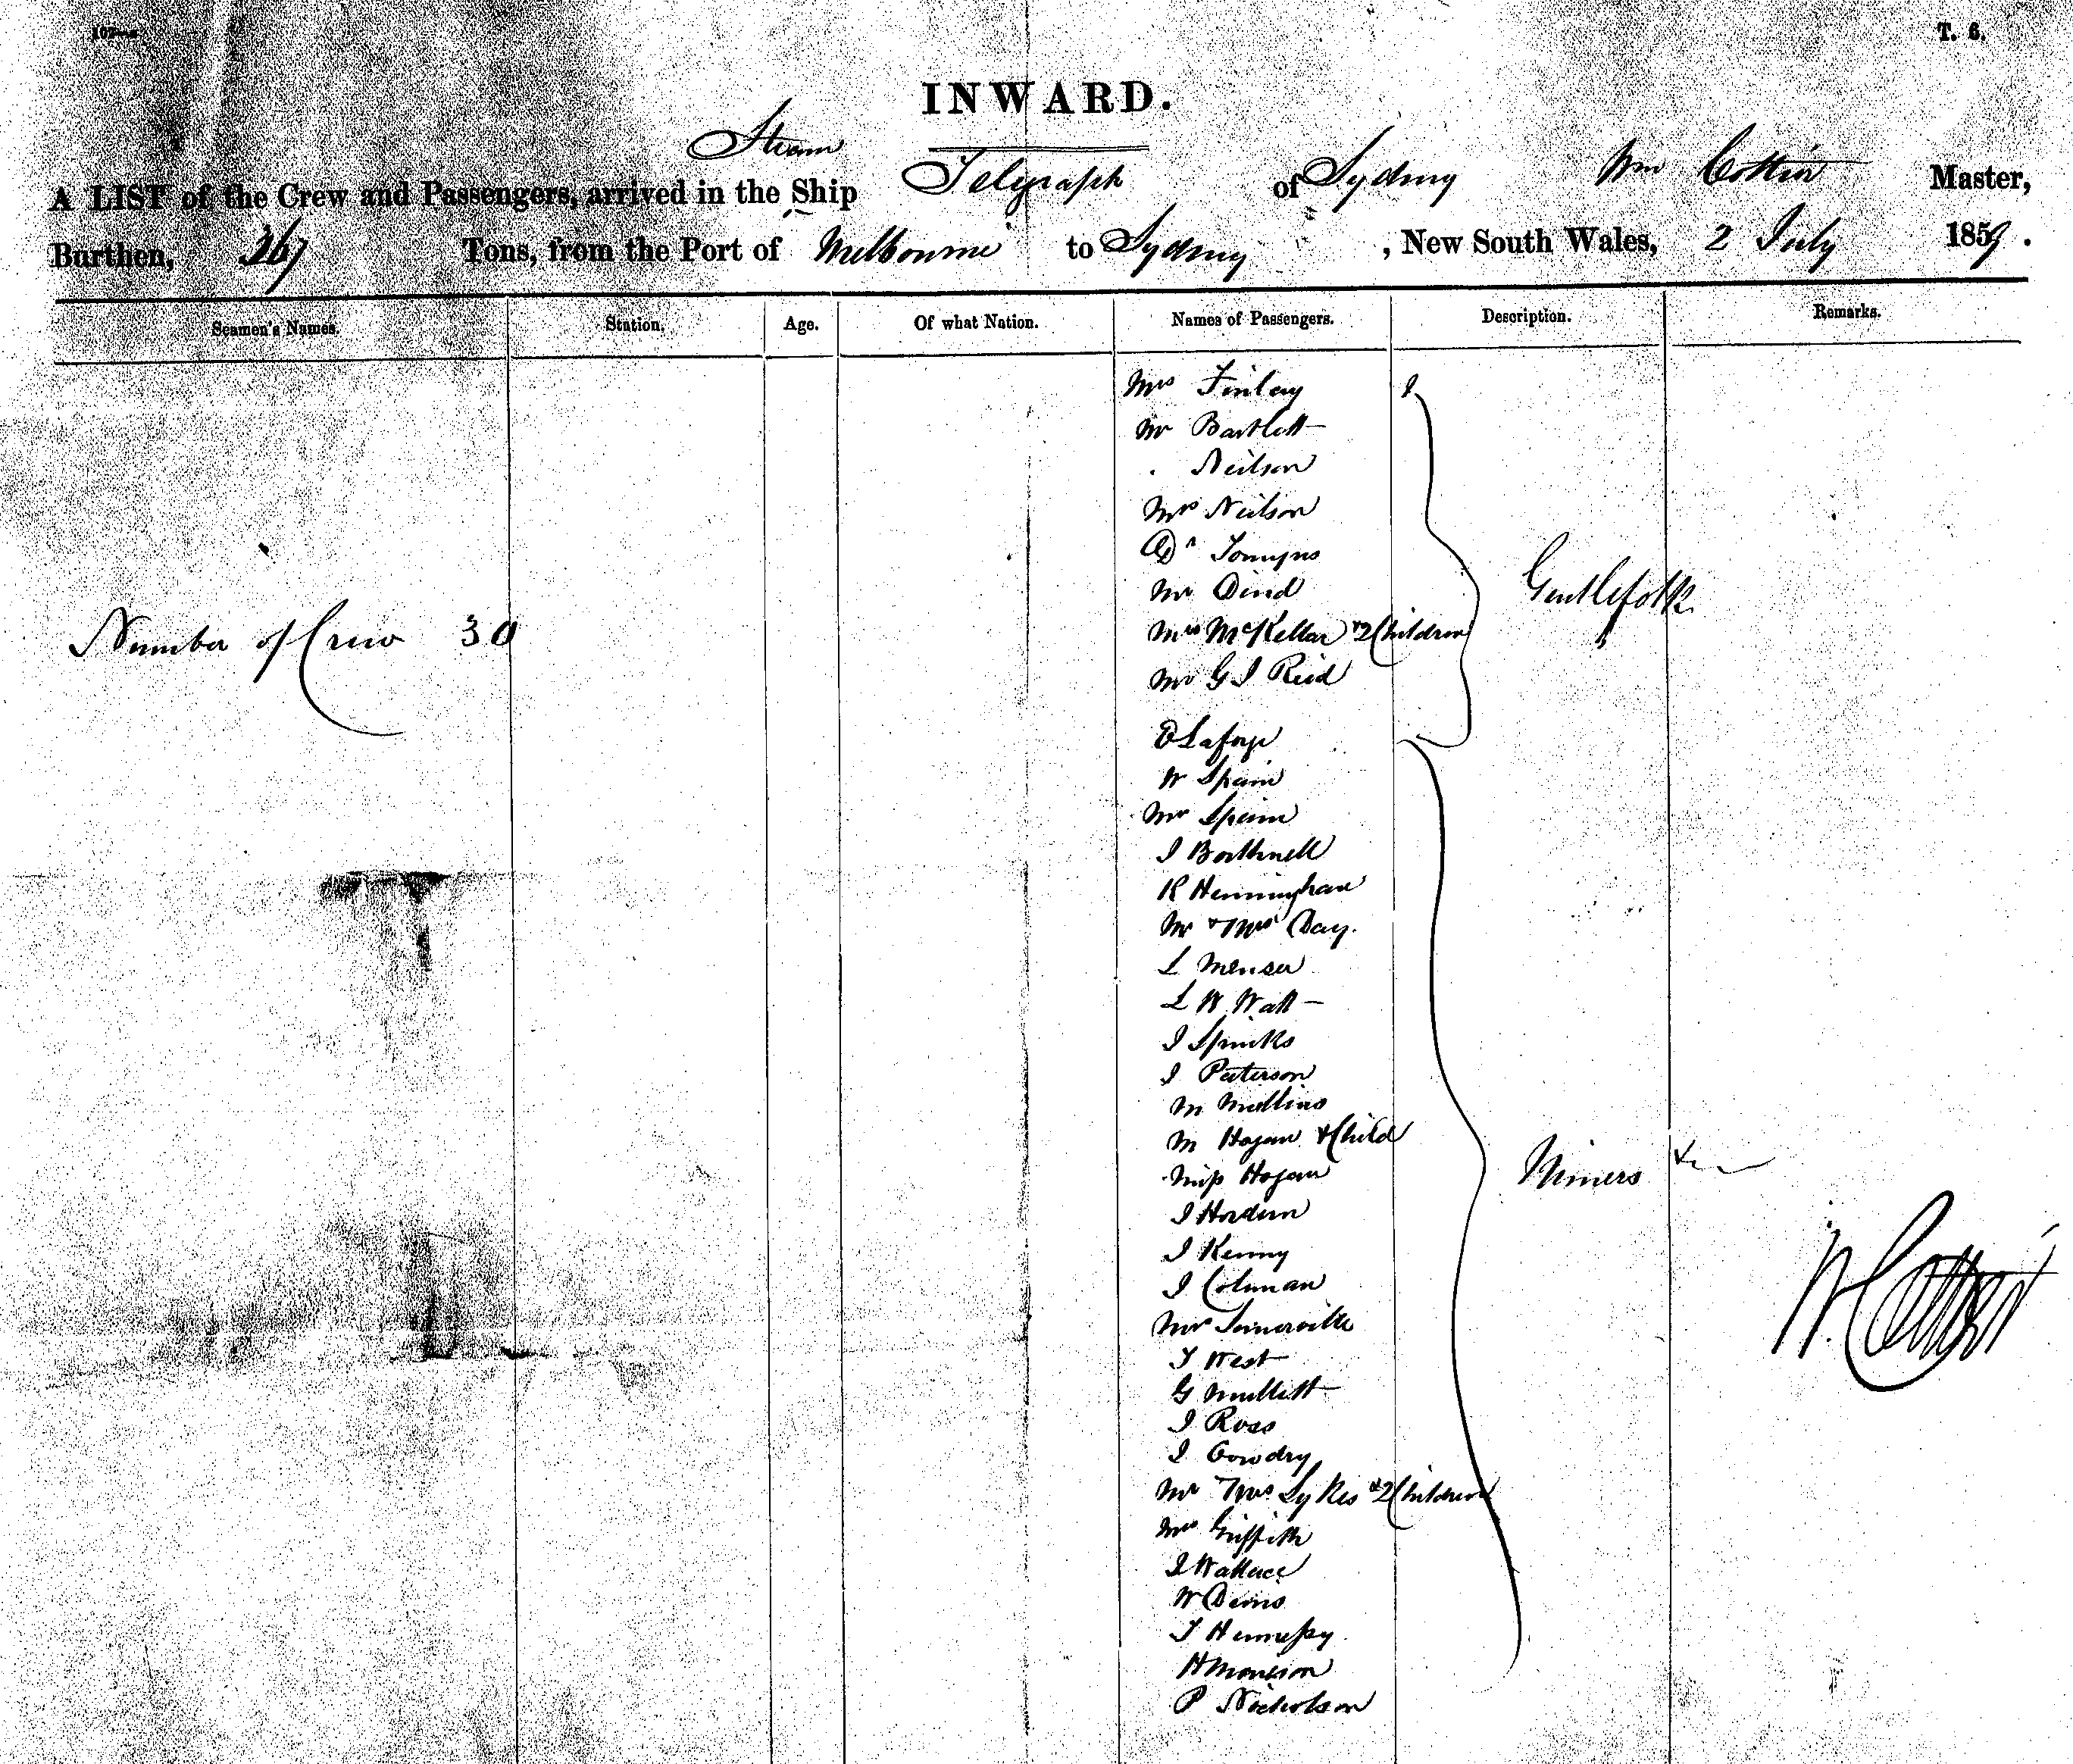 T. 6.
INWARD.
Steam
A LIST of the Crew and Passengers, arrived in the Ship Telegraph of Sydney Wm Cottier Master,
Burthen, 367 Tons, from the Port of Melbourne to Sydney , New South Wales, 2 July 1859.
Seamen's Names. Station. Age. Of what Nation. Names of Passengers. Description. Remarks.
Mrs Finlay
Mr Bartlett
Neilson
Mrs Neilson
Dr
Mr Dind
Gentlefolk
Number of Crew 30
Mrs McKellar & 2 Children
Mr G I Reid
E Laforge
W Spain
Mr Spain
I Bothwell
R Henningham
Mr & Mrs Day.
L Menser
L W Watt
I Spinks
I Paterson
M Mullins
M Hogan & Child
Miss Hogan
Miners &c
I Hordern
I Kenny
I Colman
Mr Somerville
T West
G Mullett
I Ross
I Cowdry
Mr & Mrs Sykes & 2 Children
Mrs Griffith
I Wallace
W
T Hennessy
H
P Nicholson
W. Cottier